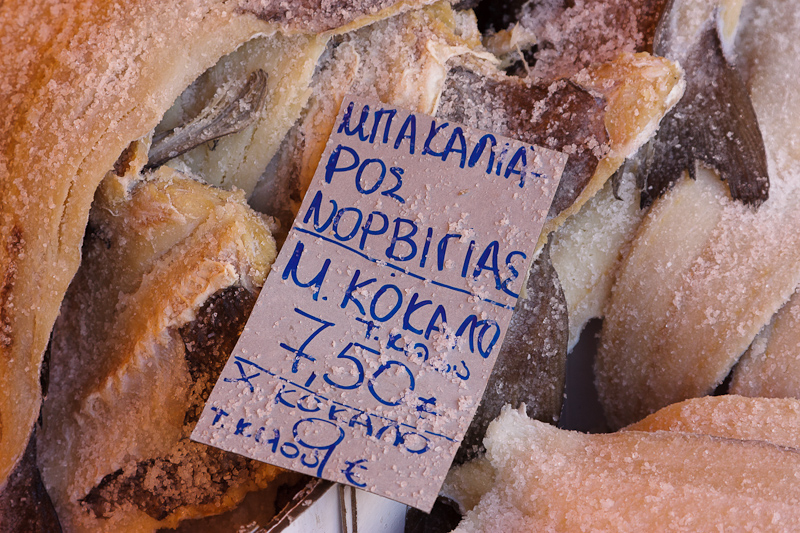 ΜΠΑΚΑΛΙΑ-
ΡΟΣ
ΝΟΡΒΙΓΙΑΣ
Μ. ΚΟΚΑΛΟ
Τ.ΚΙΛΟΥ
7,50 €
Χ ΚΟΚΑΛΟ
Τ.ΚΙΛΟΥ 9 €